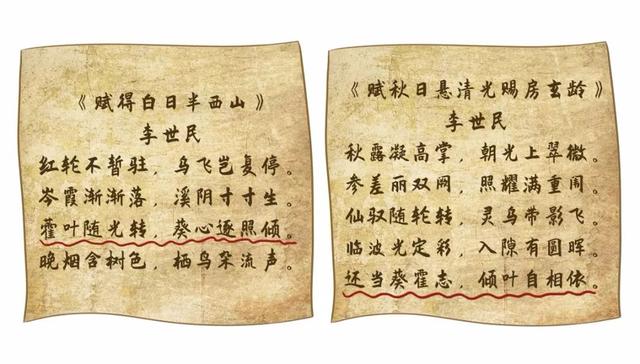 《赋得白日半西山》
李世民
红轮不暂驻，乌飞岂复停。
岑霞渐渐落，溪阴寸寸生。
藿叶随光转，葵心逐照倾。
晚烟含树色，栖鸟杂流声。
《赋秋日悬清光赐房玄龄》
李世民
秋露凝高掌，朝光上翠微。
参差丽双阙，照耀满重闱。
仙驭随轮转，灵乌带影飞。
临波光定彩，入隙有圆晖。
还当葵藿志，倾叶自相依。